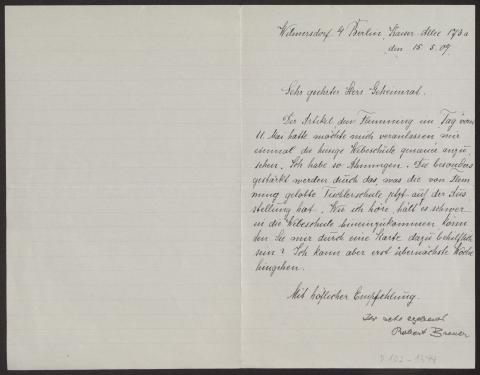 Wilmersdorf b Berlin, Kaiser Allee 173a
den 15. 5. 09.
Sehr geehrter Herr Geheimrat.
Der Artikel den Flemming im Tag vom
11. Mai hatte möchte mich veranlassen mir
einmal die hiesige Webeschule genauer anzu
sehen. Ich habe so Ahnungen. Die besonders
gestärkt werden durch das, was die von Flem
ming gelobte Tischlerschule jetzt auf der Aus
stellung hat. Wie ich höre, hält es schwer
in die Webeschule hineinzukommen könn
ten Sie mir durch eine Karte dazu behülflich
sein? Ich kann aber erst übernächste Woche
hingehen.
Mit höflicher Empfehlung.
Ihr sehr ergebener
Robert Breuer
D 102-1344